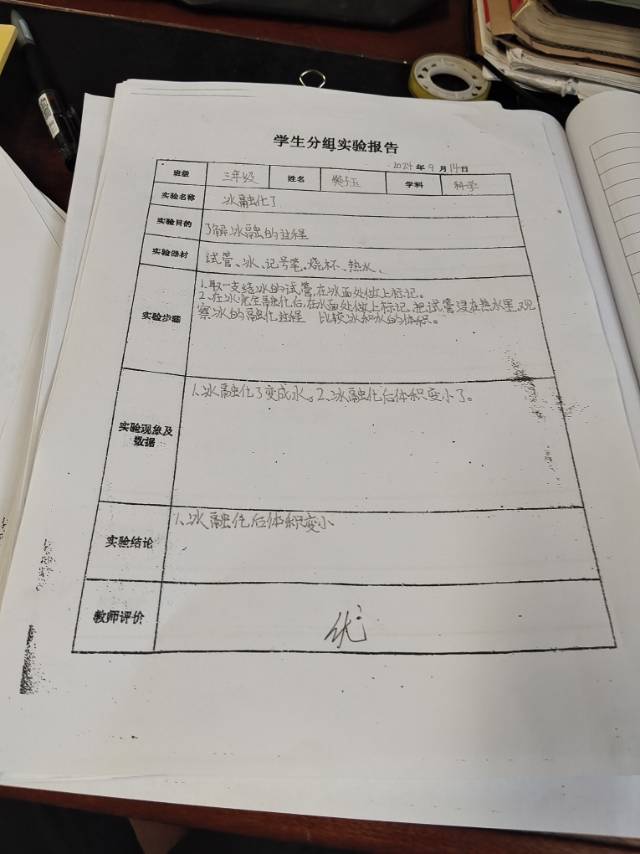 学生分组实验报告
2024年9月14日
班级 三年级 姓名 学科 科学
实验名称 冰融化了
实验目的 了解冰融的过程
实验器材 试管、冰、记号笔、烧杯、热水、
实验步骤
1.取一支结冰的试管,在冰面处做上标记。
2.在冰完全融化后,在水面处做上标记,把试管浸在热水里,观
察冰的融化过程 比较冰和水的体积。
实验现象及
数据
1.冰融化了变成水。2.冰融化后体积变小了。
实验结论
1、冰融化后体积变小
教师评价 优